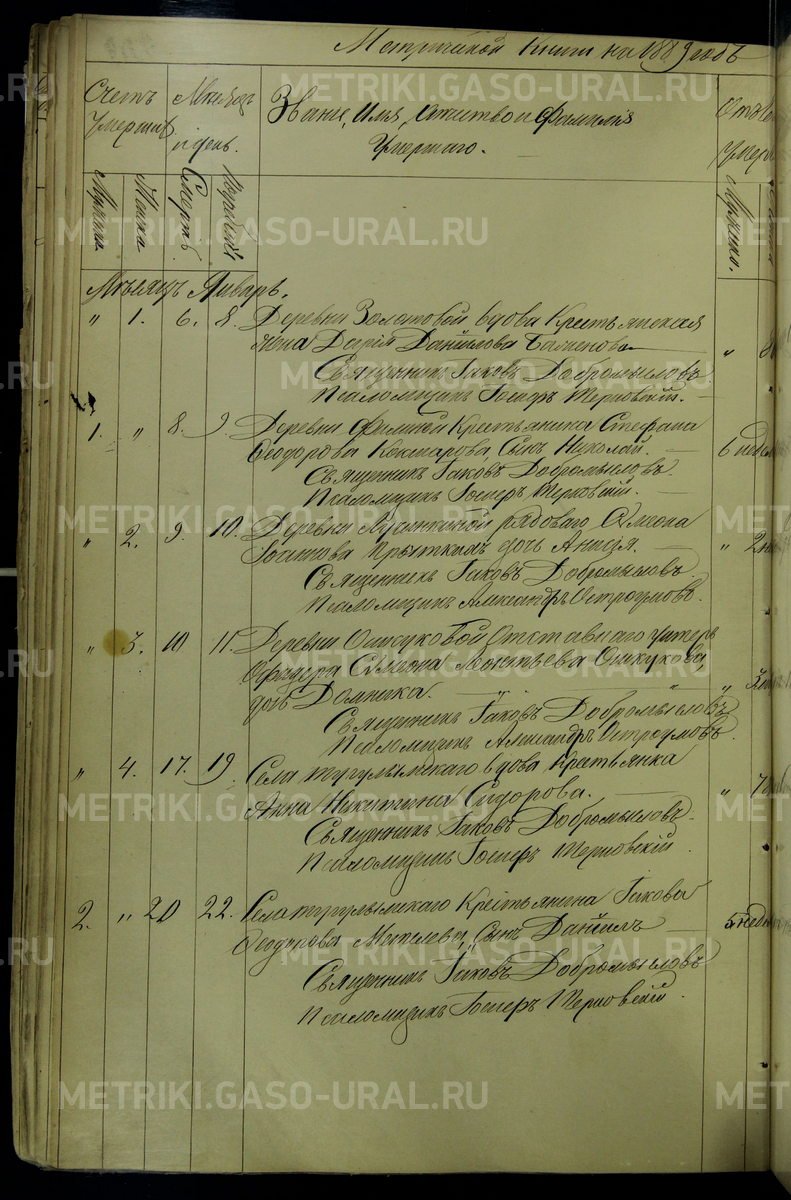 Метрической книги на 1889 годъ
Счетъ умершихъ
Мѣсяцъ и день.
Званіе, имя, отчество и фамилія
умершаго.
Мужеска
Женска
Смерти
Погребенія
Мужеска.
Мѣсяцъ Январь.
" 1. 6. 8. Деревни Золотовой вдова Крестьянская
жена Дарія Данилова
Священникъ Іаковъ Добромысловъ.
Псаломщикъ Іосифъ Терновскій.
1. " 8. 9. Деревни Крестьянина Стефана
Ѳеодорова сынъ Николай.
Священникъ Іаковъ Добромысловъ.
Псаломщикъ Іосифъ Терновскій.
" 2. 9. 10. Деревни рядоваго Симеона
Іоаннова дочь Анисія.
Священникъ Іаковъ Добромысловъ.
Псаломщикъ Александръ Остроумовъ.
" 3. 10 11. Деревни Ошкуковой Отставнаго унтеръ
Офицера Симеона Ошкукова
дочь Домника.
Священникъ Іаковъ Добромысловъ
Псаломщикъ Александръ Остроумовъ.
" 4. 17. 19. Села тугулымскаго вдова Крестьянка
Анна Никитина Сидорова.
Священникъ Іаковъ Добромысловъ.
Псаломщикъ Іосифъ Терновскій.
2. " 20 22. Села тугулымскаго Крестьянина Іакова
Ѳеодорова сынъ Даніилъ
Священникъ Іаковъ Добромысловъ
Псаломщикъ Іосифъ Терновскій.
METRIKI.GASO-URAL.RU